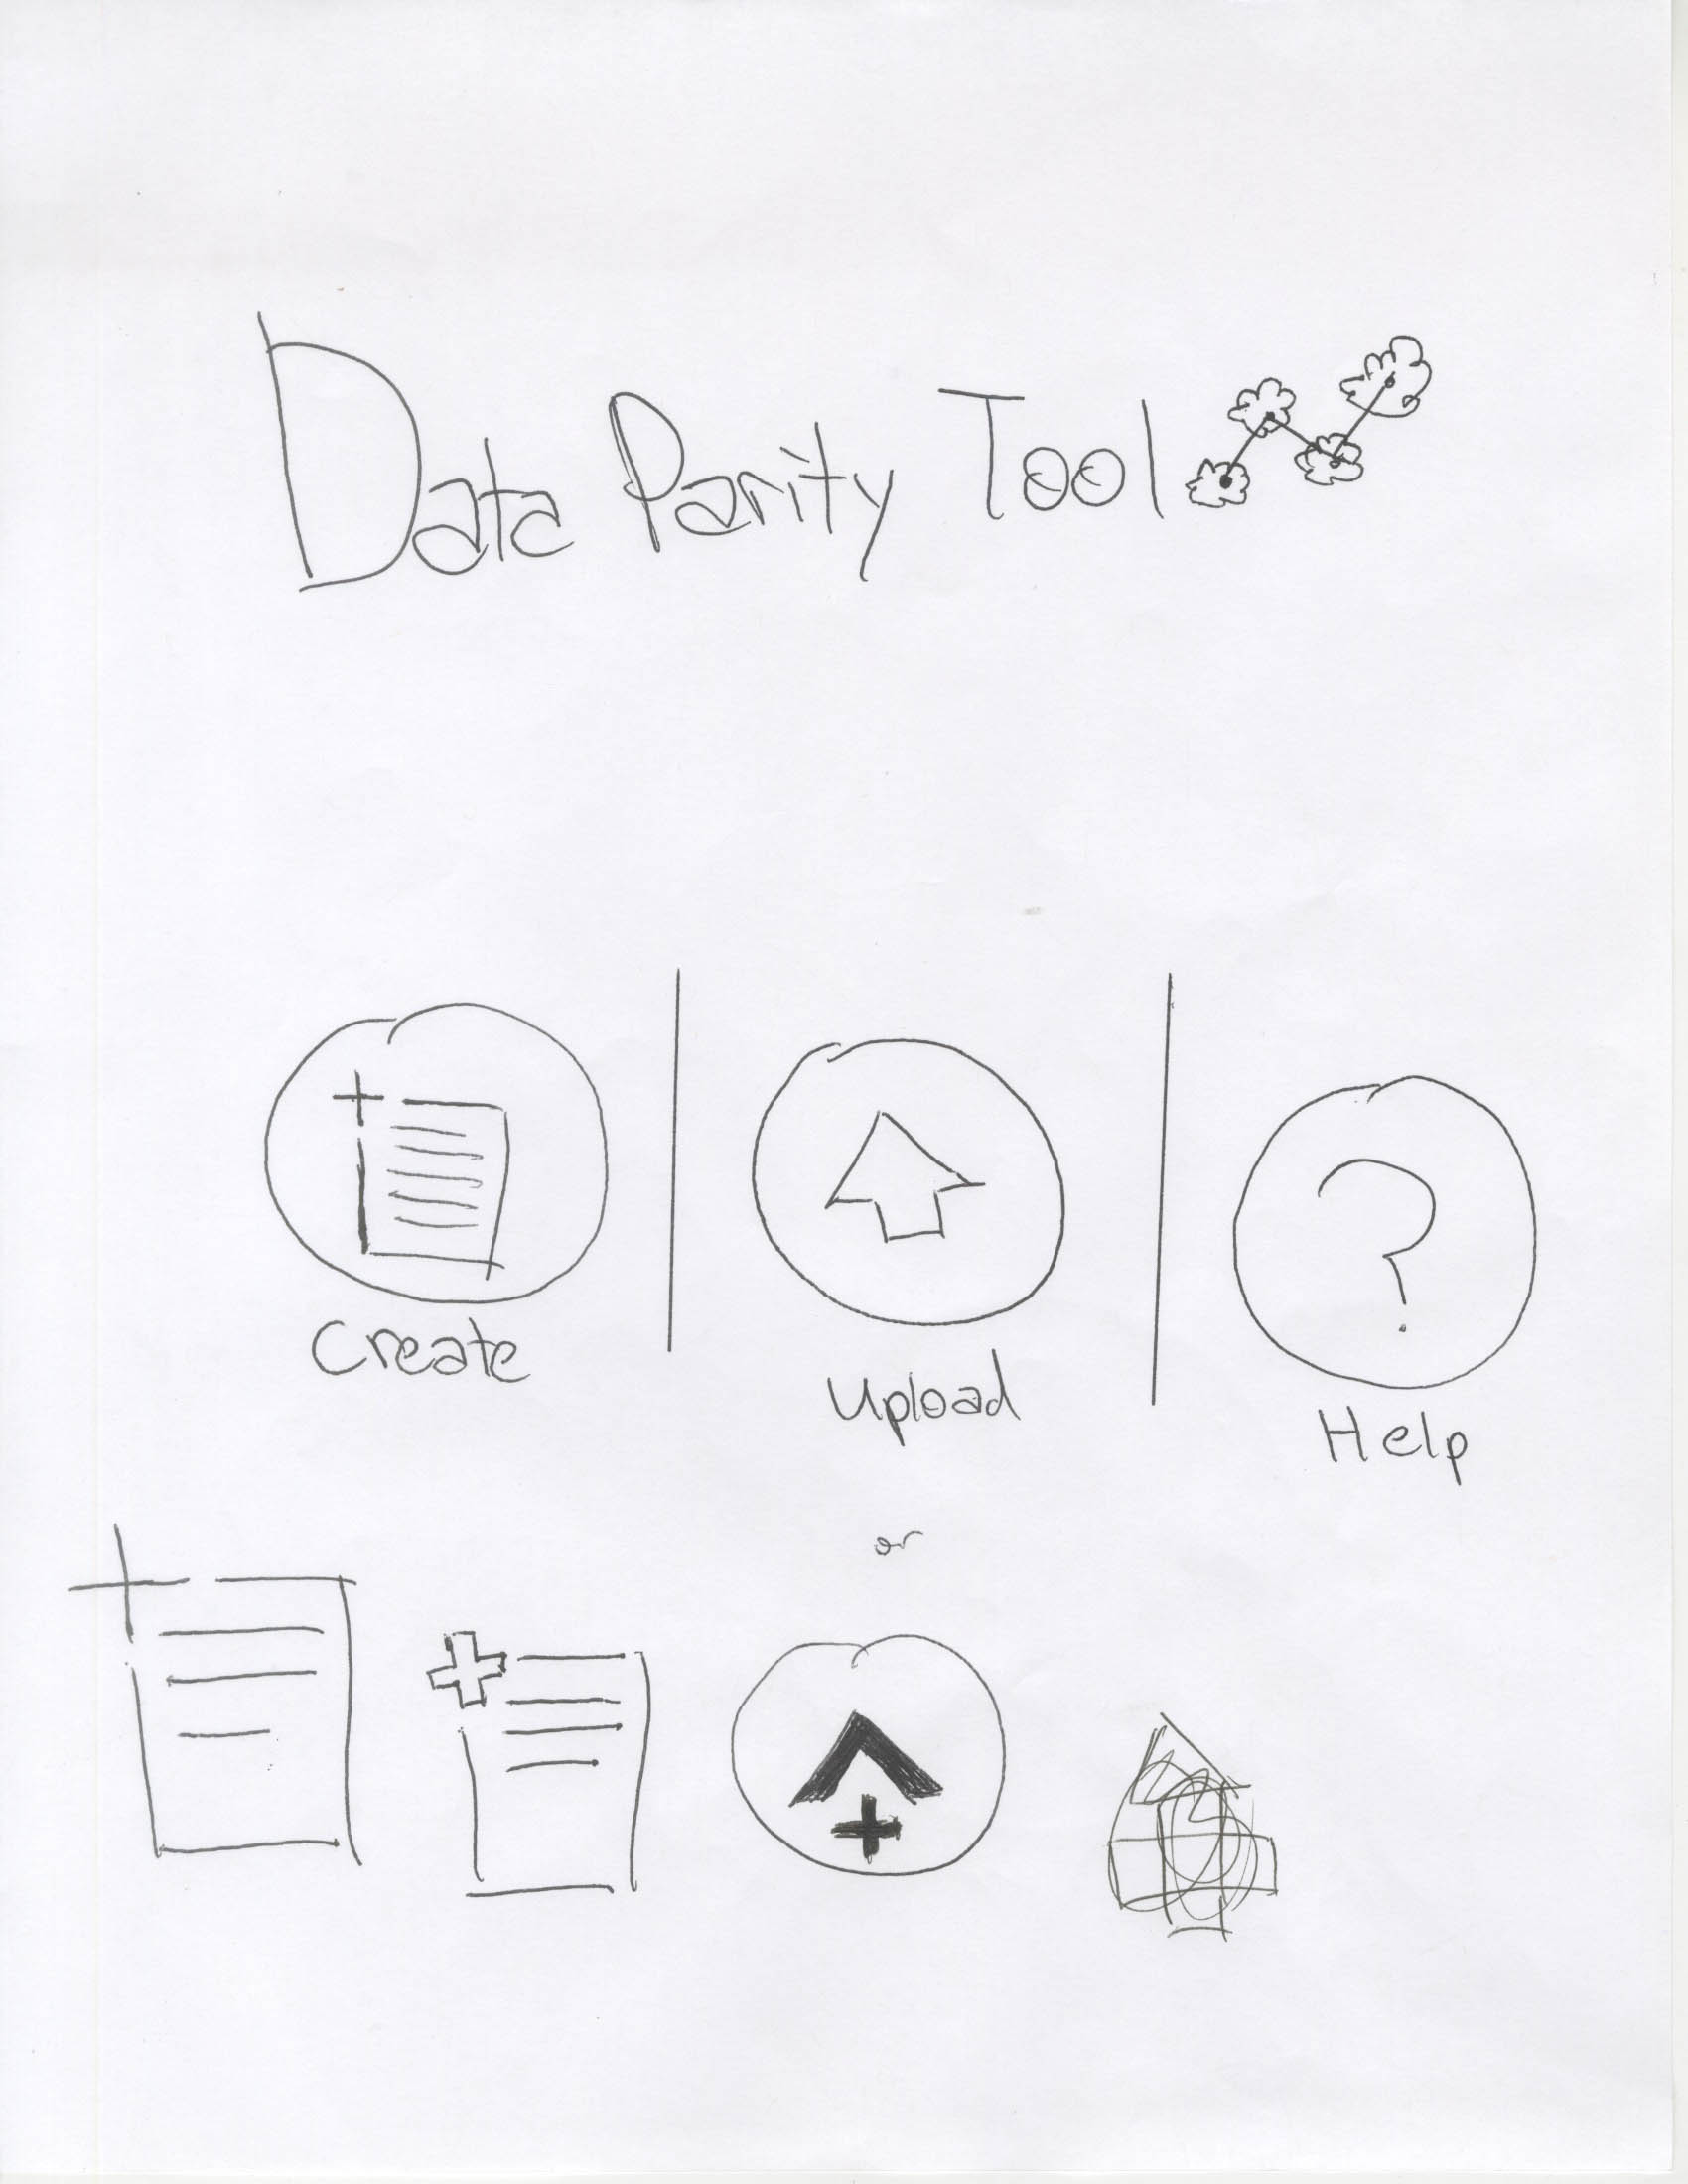 Data Parity Tool
Create
Upload
Help
or